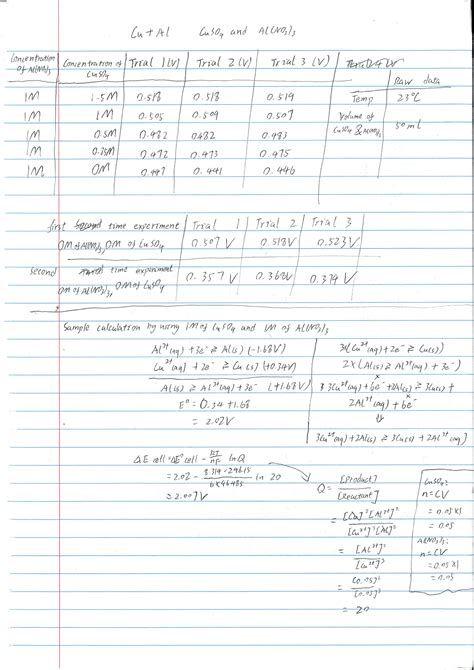 Cu + Al CuSO4 and Al(NO3)3
Concentration of Al(NO3)3 Concentration of CuSO4 Trial 1 (V) Trial 2 (V) Trial 3 (V)
Raw data
1M 1.5M 0.518 0.518 0.519 Temp 23°C
1M 1M 0.505 0.509 0.507 Volume of CuSO4 & Al(NO3)3 50mL
1M 0.5M 0.482 0482 0.483
1M 0.25M 0.472 0.473 0.475
1M 0M 0.447 0.441 0.446
first second time experiment Trial 1 Trial 2 Trial 3
0M of Al(NO3)3, 0M of CuSO4 0.507 V 0.518V 0.523V
second time experiment
0M of Al(NO3)3, 0M of CuSO4 0.357 V 0.374 V
Sample calculation by using 1M of CuSO4 and 1M of Al(NO3)3
Al3+(aq) + 3e- ⇌ Al(s) (-1.68V)
Cu2+(aq) + 2e- ⇌ Cu(s) (+0.34V)
Al(s) ⇌ Al3+(aq) + 3e- (+1.68V)
E° = 0.34 + 1.68
= 2.02V
3x(Cu2+(aq) + 2e- ⇌ Cu(s))
2x(Al(s) ⇌ Al3+(aq) + 3e-)
3Cu2+(aq) + 6e- + 2Al(s) ⇌ 3Cu(s) +
2Al3+(aq) + 6e-
3Cu2+(aq) + 2Al(s) ⇌ 3Cu(s) + 2Al3+(aq)
ΔE cell = ΔE° cell - RT/nF lnQ
= 2.02 - 8.314×296.15/6×96485 ln 20
= 2.007V
Q = [Product]/[Reactant]
= [Cu]3[Al3+]2/[Cu2+]3[Al]2
= [Al3+]2/[Cu2+]3
= [0.05]2/[0.05]3
= 20
CuSO4:
n=CV
= 0.05×1
= 0.05
Al(NO3)3:
n=CV
= 0.05×1
= 0.05